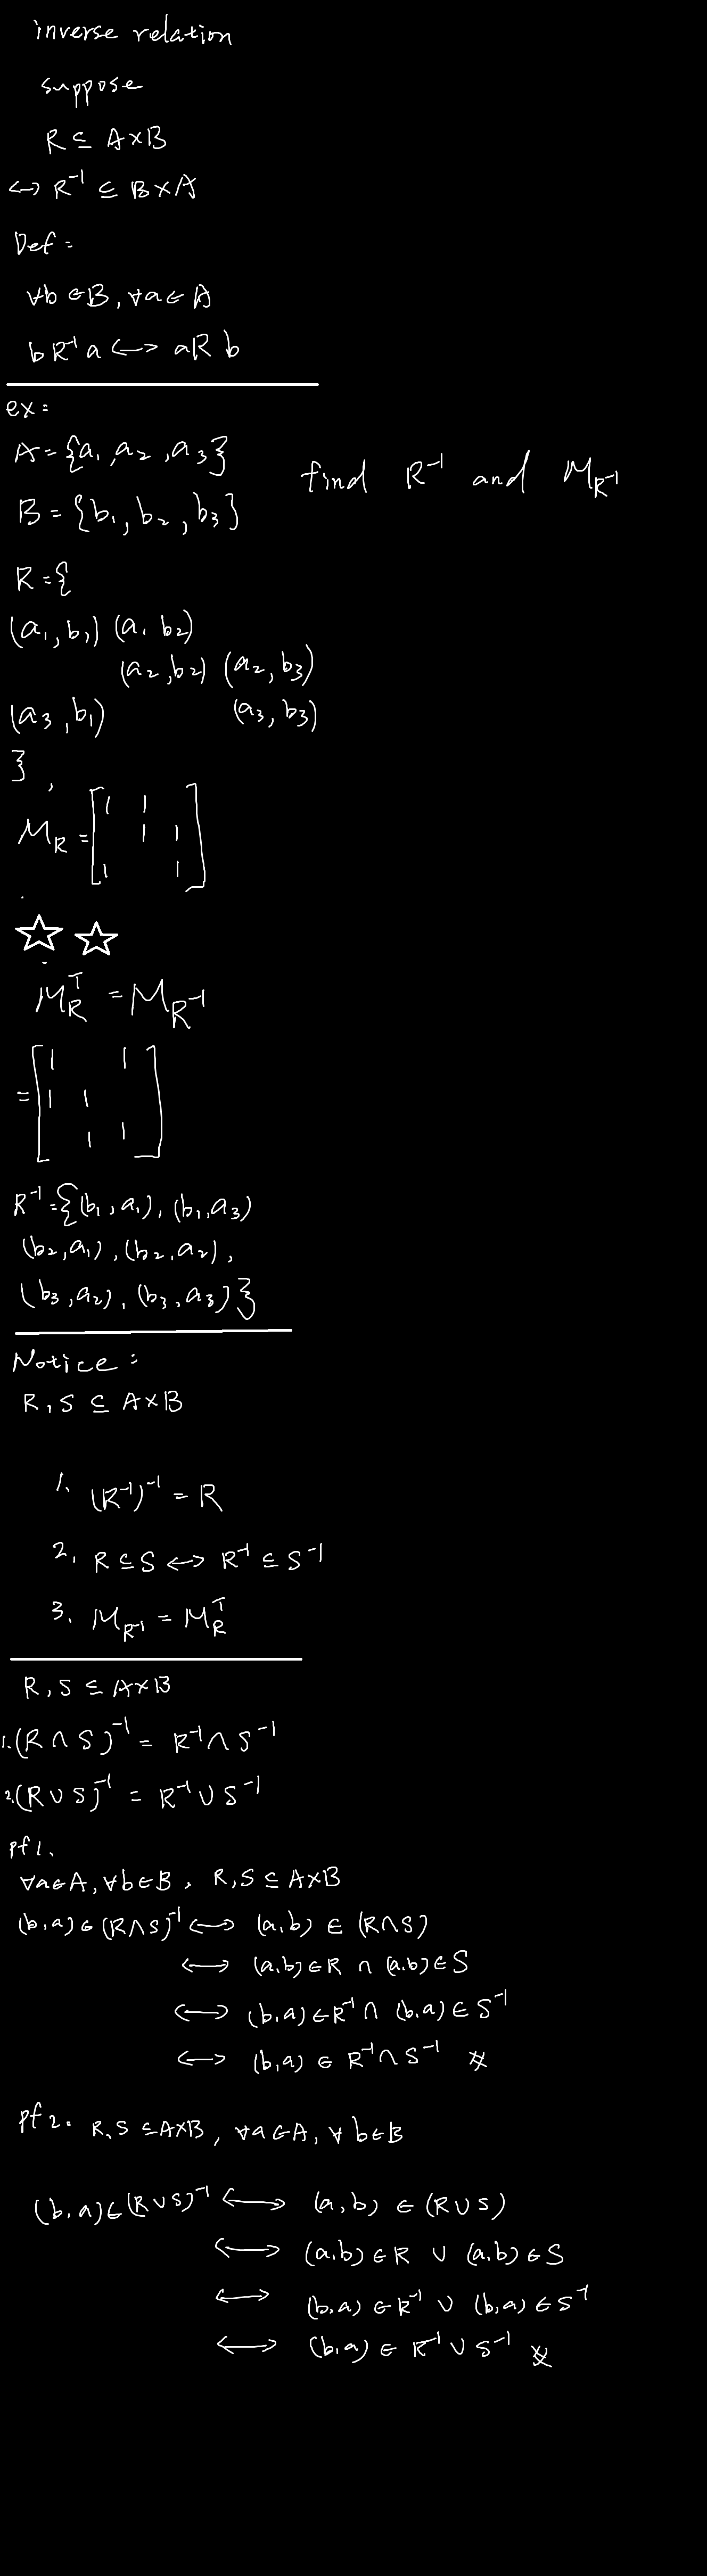 inverse relation
suppose
R ⊆ A×B
↔ R⁻¹ ⊆ B×A
Def:
∀b∈B, ∀a∈A
bR⁻¹a ↔ aRb
ex:
A={a₁,a₂,a₃}
find R⁻¹ and M_R⁻¹
B={b₁,b₂,b₃}
R={
(a₁,b₁) (a₁ b₂)
(a₂,b₂) (a₂,b₃)
(a₃,b₁) (a₃,b₃)
},
M_R = [1 1
1 1
1 1]
☆ ☆
M_R^T = M_R⁻¹
= [1 1
1 1
1 1]
R⁻¹={(b₁,a₁),(b₁,a₃)
(b₂,a₁),(b₂,a₂),
(b₃,a₂),(b₃,a₃)}
Notice:
R,S ⊆ A×B
1. (R⁻¹)⁻¹ = R
2. R⊆S ↔ R⁻¹ ⊆ S⁻¹
3. M_R⁻¹ = M_R^T
R,S ⊆ A×B
1.(R∩S)⁻¹ = R⁻¹∩S⁻¹
2.(R∪S)⁻¹ = R⁻¹∪S⁻¹
pf1.
∀a∈A,∀b∈B, R,S ⊆ A×B
(b,a)∈(R∩S)⁻¹ ↔ (a,b) ∈ (R∩S)
↔ (a,b)∈R ∩ (a,b)∈S
↔ (b,a)∈R⁻¹∩ (b,a)∈S⁻¹
↔ (b,a) ∈ R⁻¹∩S⁻¹ ※
pf2. R,S ⊆A×B, ∀a∈A, ∀b∈B
(b,a)∈(R∪S)⁻¹ ↔ (a,b) ∈(R∪S)
↔ (a,b)∈R ∪ (a,b)∈S
↔ (b,a)∈R⁻¹ ∪ (b,a)∈S⁻¹
↔ (b,a)∈ R⁻¹∪S⁻¹ ※